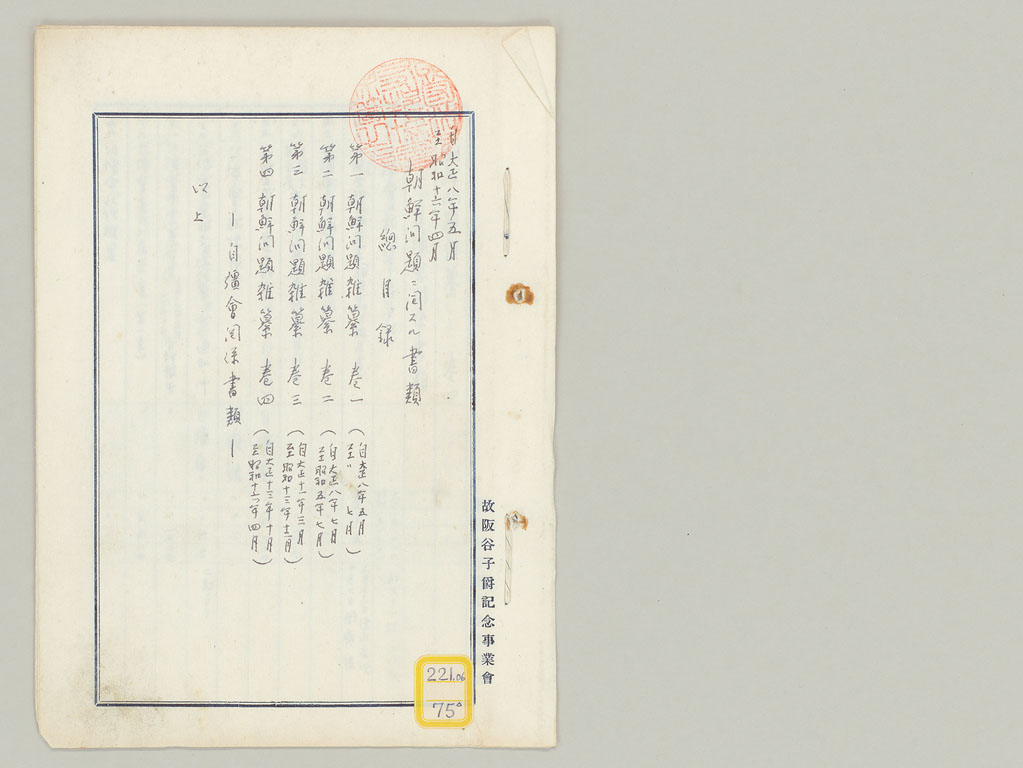 自大正八年五月
至昭和十六年四月
朝鮮问題ニ関スル書類
總目録
第一 朝鮮问題雑纂 巻一 (自大正八年五月 至〃 七月)
第二 朝鮮问題雑纂 巻二 (自大正八年七月 至昭和五年七月)
第三 朝鮮问題雑纂 巻三 (自大正十一年三月 至昭和十三年十二月)
第四 朝鮮问題雑纂 巻四 (自大正十三年十月 至昭和十六年四月)
ー自彊會関係書類ー
以上
故阪谷子爵記念事業會
221.06
75